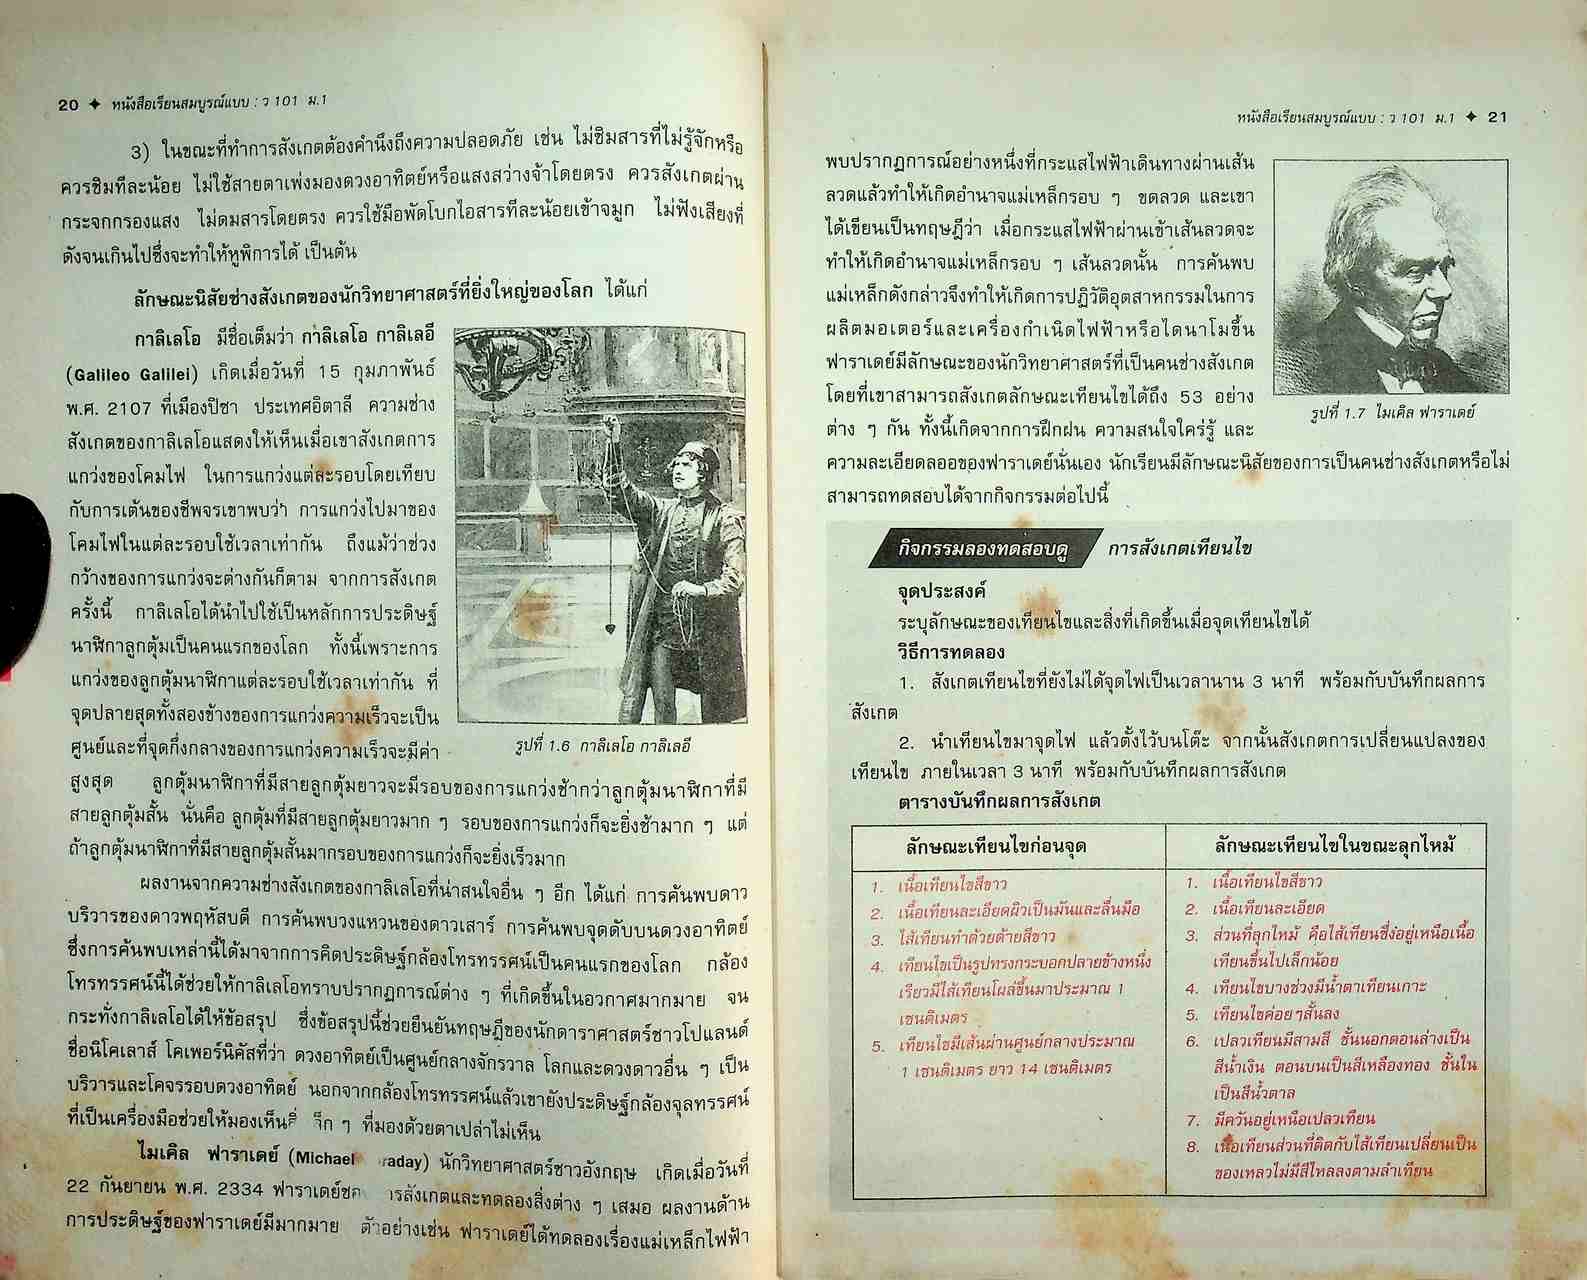 20 ✦ หนังสือเรียนสมบูรณ์แบบ : ว 101 ม.1
3) ในขณะที่ทำการสังเกตต้องคำนึงถึงความปลอดภัย เช่น ไม่ชิมสารที่ไม่รู้จักหรือ
ควรชิมทีละน้อย ไม่ใช้สายตาเพ่งมองดวงอาทิตย์หรือแสงสว่างจ้าโดยตรง ควรสังเกตผ่าน
กระจกกรองแสง ไม่ดมสารโดยตรง ควรใช้มือพัดโบกไอสารทีละน้อยเข้าจมูก ไม่ฟังเสียงที่
ดังจนเกินไปซึ่งจะทำให้หูพิการได้ เป็นต้น
ลักษณะนิสัยช่างสังเกตของนักวิทยาศาสตร์ที่ยิ่งใหญ่ของโลก ได้แก่
กาลิเลโอ มีชื่อเต็มว่า กาลิเลโอ กาลิเลอี
(Galileo Galilei) เกิดเมื่อวันที่ 15 กุมภาพันธ์
พ.ศ. 2107 ที่เมืองปิซา ประเทศอิตาลี ความช่าง
สังเกตของกาลิเลโอแสดงให้เห็นเมื่อเขาสังเกตการ
แกว่งของโคมไฟ ในการแกว่งแต่ละรอบโดยเทียบ
กับการเต้นของชีพจรเขาพบว่า การแกว่งไปมาของ
โคมไฟในแต่ละรอบใช้เวลาเท่ากัน ถึงแม้ว่าช่วง
กว้างของการแกว่งจะต่างกันก็ตาม จากการสังเกต
ครั้งนี้ กาลิเลโอได้นำไปใช้เป็นหลักการประดิษฐ์
นาฬิกาลูกตุ้มเป็นคนแรกของโลก ทั้งนี้เพราะการ
แกว่งของลูกตุ้มนาฬิกาแต่ละรอบใช้เวลาเท่ากัน ที่
จุดปลายสุดทั้งสองข้างของการแกว่งความเร็วจะเป็น
ศูนย์และที่จุดกึ่งกลางของการแกว่งความเร็วจะมีค่า
รูปที่ 1.6 กาลิเลโอ กาลิเลอี
สูงสุด ลูกตุ้มนาฬิกาที่มีสายลูกตุ้มยาวจะมีรอบของการแกว่งช้ากว่าลูกตุ้มนาฬิกาที่มี
สายลูกตุ้มสั้น นั่นคือ ลูกตุ้มที่มีสายลูกตุ้มยาวมาก ๆ รอบของการแกว่งก็จะยิ่งช้ามาก ๆ แต่
ถ้าลูกตุ้มนาฬิกาที่มีสายลูกตุ้มสั้นมากรอบของการแกว่งก็จะยิ่งเร็วมาก
ผลงานจากความช่างสังเกตของกาลิเลโอที่น่าสนใจอื่น ๆ อีก ได้แก่ การค้นพบดาว
บริวารของดาวพฤหัสบดี การค้นพบวงแหวนของดาวเสาร์ การค้นพบจุดดับบนดวงอาทิตย์
ซึ่งการค้นพบเหล่านี้ได้มาจากการคิดประดิษฐ์กล้องโทรทรรศน์เป็นคนแรกของโลก กล้อง
โทรทรรศน์นี้ได้ช่วยให้กาลิเลโอทราบปรากฏการณ์ต่าง ๆ ที่เกิดขึ้นในอวกาศมากมาย จน
กระทั่งกาลิเลโอได้ให้ข้อสรุป ซึ่งข้อสรุปนี้ช่วยยืนยันทฤษฎีของนักดาราศาสตร์ชาวโปแลนด์
ชื่อนิโคเลาส์ โคเพอร์นิคัสที่ว่า ดวงอาทิตย์เป็นศูนย์กลางจักรวาล โลกและดวงดาวอื่น ๆ เป็น
บริวารและโคจรรอบดวงอาทิตย์ นอกจากกล้องโทรทรรศน์แล้วเขายังประดิษฐ์กล้องจุลทรรศน์
ที่เป็นเครื่องมือช่วยให้มองเห็น ๆ ที่มองด้วยตาเปล่าไม่เห็น
ไมเคิล ฟาราเดย์ (Michael raday) นักวิทยาศาสตร์ชาวอังกฤษ เกิดเมื่อวันที่
22 กันยายน พ.ศ. 2334 ฟาราเดย์ช สังเกตและทดลองสิ่งต่าง ๆ เสมอ ผลงานด้าน
การประดิษฐ์ของฟาราเดย์มีมากมาย ตัวอย่างเช่น ฟาราเดย์ได้ทดลองเรื่องแม่เหล็กไฟฟ้า
หนังสือเรียนสมบูรณ์แบบ : ว 101 ม.1 ✦ 21
พบปรากฏการณ์อย่างหนึ่งที่กระแสไฟฟ้าเดินทางผ่านเส้น
ลวดแล้วทำให้เกิดอำนาจแม่เหล็กรอบ ๆ ขดลวด และเขา
ได้เขียนเป็นทฤษฎีว่า เมื่อกระแสไฟฟ้าผ่านเข้าเส้นลวดจะ
ทำให้เกิดอำนาจแม่เหล็กรอบ ๆ เส้นลวดนั้น การค้นพบ
แม่เหล็กดังกล่าวจึงทำให้เกิดการปฏิวัติอุตสาหกรรมในการ
ผลิตมอเตอร์และเครื่องกำเนิดไฟฟ้าหรือไดนาโมขึ้น
ฟาราเดย์มีลักษณะของนักวิทยาศาสตร์ที่เป็นคนช่างสังเกต
โดยที่เขาสามารถสังเกตลักษณะเทียนไขได้ถึง 53 อย่าง
ต่าง ๆ กัน ทั้งนี้เกิดจากการฝึกฝน ความสนใจใคร่รู้ และ
รูปที่ 1.7 ไมเคิล ฟาราเดย์
ความละเอียดลออของฟาราเดย์นั่นเอง นักเรียนมีลักษณะนิสัยของการเป็นคนช่างสังเกตหรือไม่
สามารถทดสอบได้จากกิจกรรมต่อไปนี้
กิจกรรมลองทดสอบดู การสังเกตเทียนไข
จุดประสงค์
ระบุลักษณะของเทียนไขและสิ่งที่เกิดขึ้นเมื่อจุดเทียนไขได้
วิธีการทดลอง
1. สังเกตเทียนไขที่ยังไม่ได้จุดไฟเป็นเวลานาน 3 นาที พร้อมกับบันทึกผลการ
สังเกต
2. นำเทียนไขมาจุดไฟ แล้วตั้งไว้บนโต๊ะ จากนั้นสังเกตการเปลี่ยนแปลงของ
เทียนไข ภายในเวลา 3 นาที พร้อมกับบันทึกผลการสังเกต
ตารางบันทึกผลการสังเกต
ลักษณะเทียนไขก่อนจุด
1. เนื้อเทียนไขสีขาว
2. เนื้อเทียนละเอียดผิวเป็นมันและลื่นมือ
3. ไส้เทียนทำด้วยด้ายสีขาว
4. เทียนไขเป็นรูปทรงกระบอกปลายข้างหนึ่ง
เรียวมีไส้เทียนโผล่ขึ้นมาประมาณ 1
เซนติเมตร
5. เทียนไขมีเส้นผ่านศูนย์กลางประมาณ
1 เซนติเมตร ยาว 14 เซนติเมตร
ลักษณะเทียนไขในขณะลุกไหม้
1. เนื้อเทียนไขสีขาว
2. เนื้อเทียนละเอียด
3. ส่วนที่ลุกไหม้ คือไส้เทียนซึ่งอยู่เหนือเนื้อ
เทียนขึ้นไปเล็กน้อย
4. เทียนไขบางช่วงมีน้ำตาเทียนเกาะ
5. เทียนไขค่อยๆสั้นลง
6. เปลวเทียนมีสามสี ชั้นนอกตอนล่างเป็น
สีน้ำเงิน ตอนบนเป็นสีเหลืองทอง ชั้นใน
เป็นสีน้ำตาล
7. มีควันอยู่เหนือเปลวเทียน
8. เนื้อเทียนส่วนที่ติดกับไส้เทียนเปลี่ยนเป็น
ของเหลวไม่มีสีไหลลงตามลำเทียน